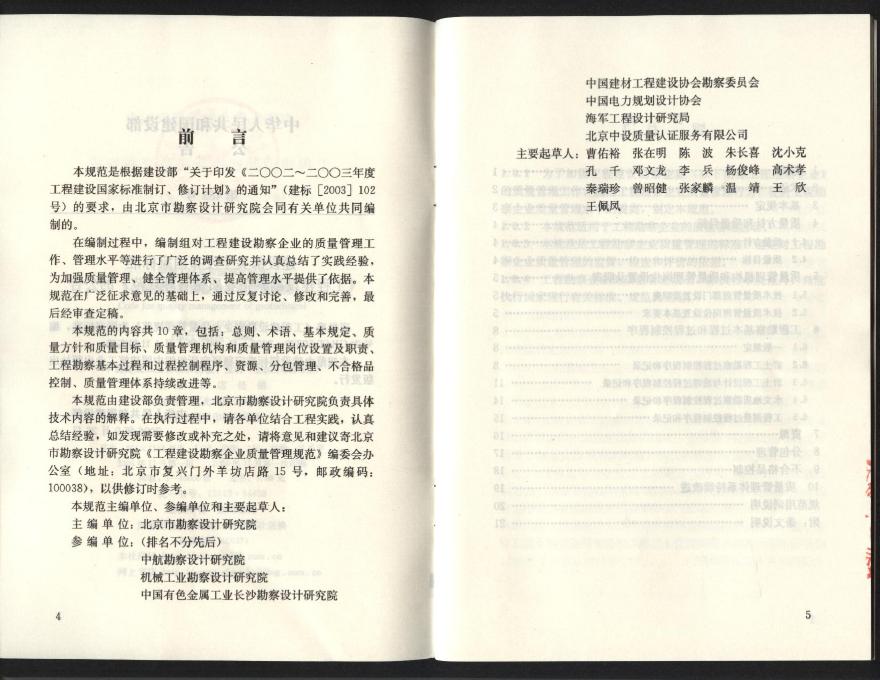 前 言
本规范是根据建设部“关于印发《二〇〇二～二〇〇三年度
工程建设国家标准制订、修订计划》的通知”（建标［2003］102
号）的要求，由北京市勘察设计研究院会同有关单位共同编
制的。
在编制过程中，编制组对工程建设勘察企业的质量管理工
作、管理水平等进行了广泛的调查研究并认真总结了实践经验，
为加强质量管理、健全管理体系、提高管理水平提供了依据。本
规范在广泛征求意见的基础上，通过反复讨论、修改和完善，最
后经审查定稿。
本规范的内容共 10 章，包括：总则、术语、基本规定、质
量方针和质量目标、质量管理机构和质量管理岗位设置及职责、
工程勘察基本过程和过程控制程序、资源、分包管理、不合格品
控制、质量管理体系持续改进等。
本规范由建设部负责管理，北京市勘察设计研究院负责具体
技术内容的解释。在执行过程中，请各单位结合工程实践，认真
总结经验，如发现需要修改或补充之处，请将意见和建议寄北京
市勘察设计研究院《工程建设勘察企业质量管理规范》编委会办
公室（地址：北京市复兴门外羊坊店路 15 号，邮政编码：
100038），以供修订时参考。
本规范主编单位、参编单位和主要起草人：
主 编 单 位：北京市勘察设计研究院
参 编 单 位：（排名不分先后）
中航勘察设计研究院
机械工业勘察设计研究院
中国有色金属工业长沙勘察设计研究院
4
中国建材工程建设协会勘察委员会
中国电力规划设计协会
海军工程设计研究局
北京中设质量认证服务有限公司
主要起草人：曹佑裕 张在明 陈 波 朱长喜 沈小克
孔 千 邓文龙 李 兵 杨俊峰 高术孝
秦瑞珍 曾昭健 张家麟 温 靖 王 欣
王佩凤
5